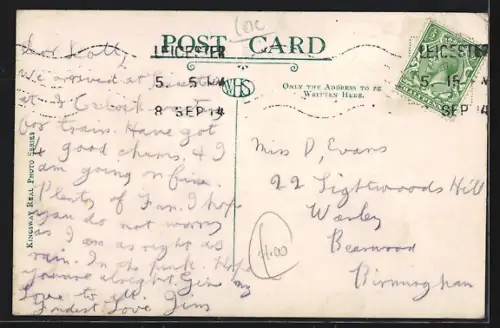 LEIC
POST CARD
LEICESTER
5. 15
8 SEP 14
LEICESTER
5. 15
SEP 14
WHS
ONLY THE ADDRESS TO BE
WRITTEN HERE.
KINGSWAY REAL PHOTO SERIES
We arrived at
at
for train. Have got
4 good chums, & I
am going on fine.
Plenty of fun. I hope
you do not worry
as I am as right as
rain. In the pink. Hope
you are alright. Give my
Love to all.
Fondest Love. Jim
Miss D, Evans
22 Lightwoods Hill
Warley
Bearwood
Birmingham
4.00